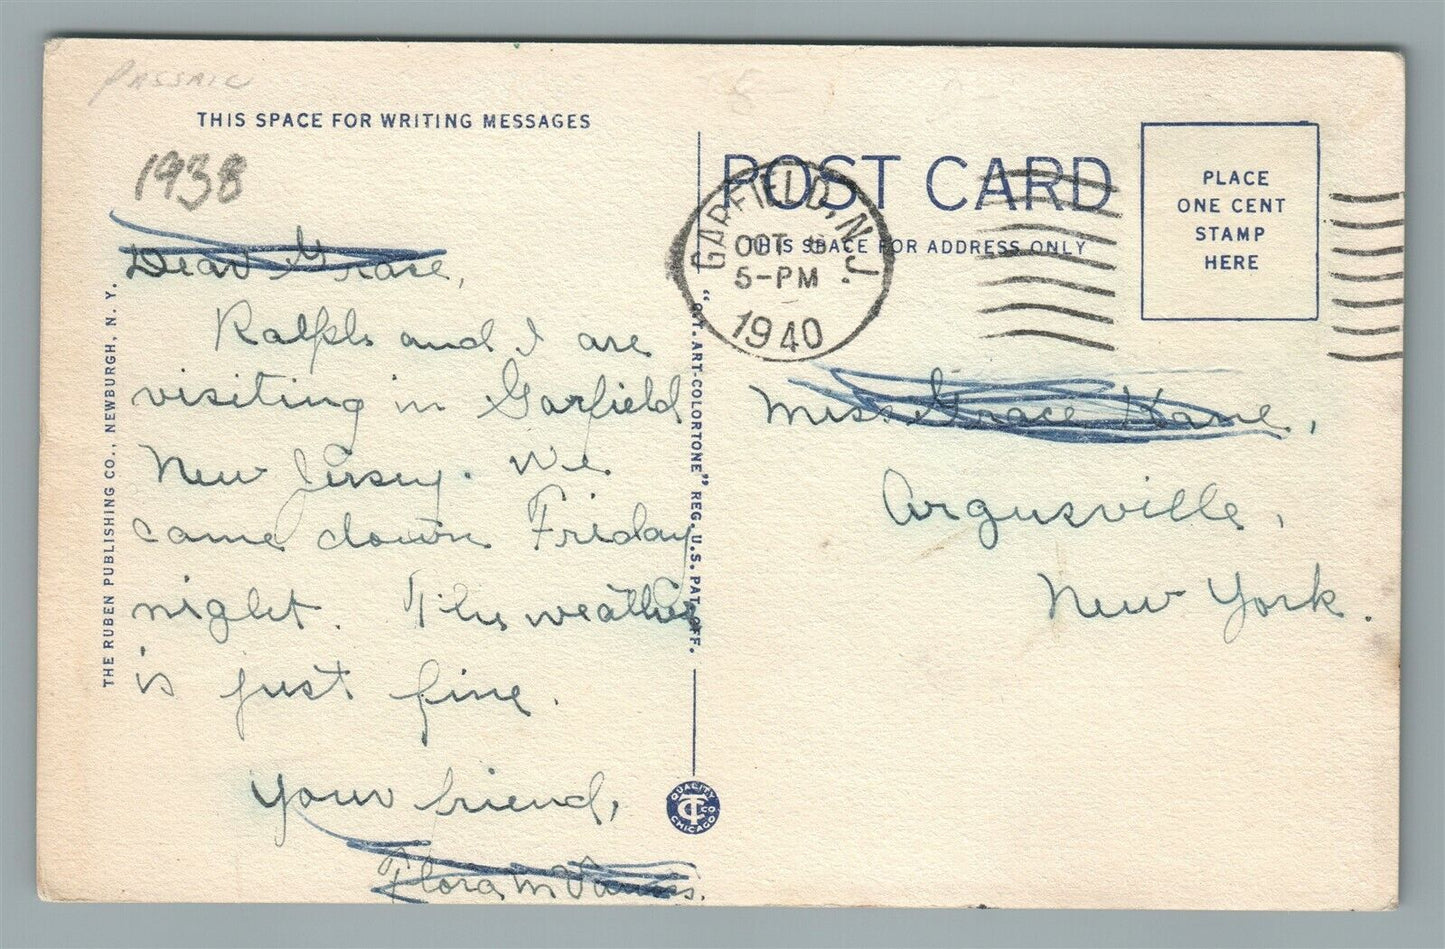 Passaic
THIS SPACE FOR WRITING MESSAGES
1938
Dear Grace,
Ralph and I are
visiting in Garfield
New Jersey. We
came down Friday
night. The weather
is just fine.
Your friend,
Flora M
THE RUBEN PUBLISHING CO., NEWBURGH, N. Y.
"C.T. ART-COLORTONE" REG. U.S. PAT. OFF.
QUALITY
CT CO
CHICAGO
POST CARD
THIS SPACE FOR ADDRESS ONLY
GARFIELD, N.J.
OCT
5-PM
1940
PLACE
ONE CENT
STAMP
HERE
Miss Grace Kane,
Argusville,
New York.